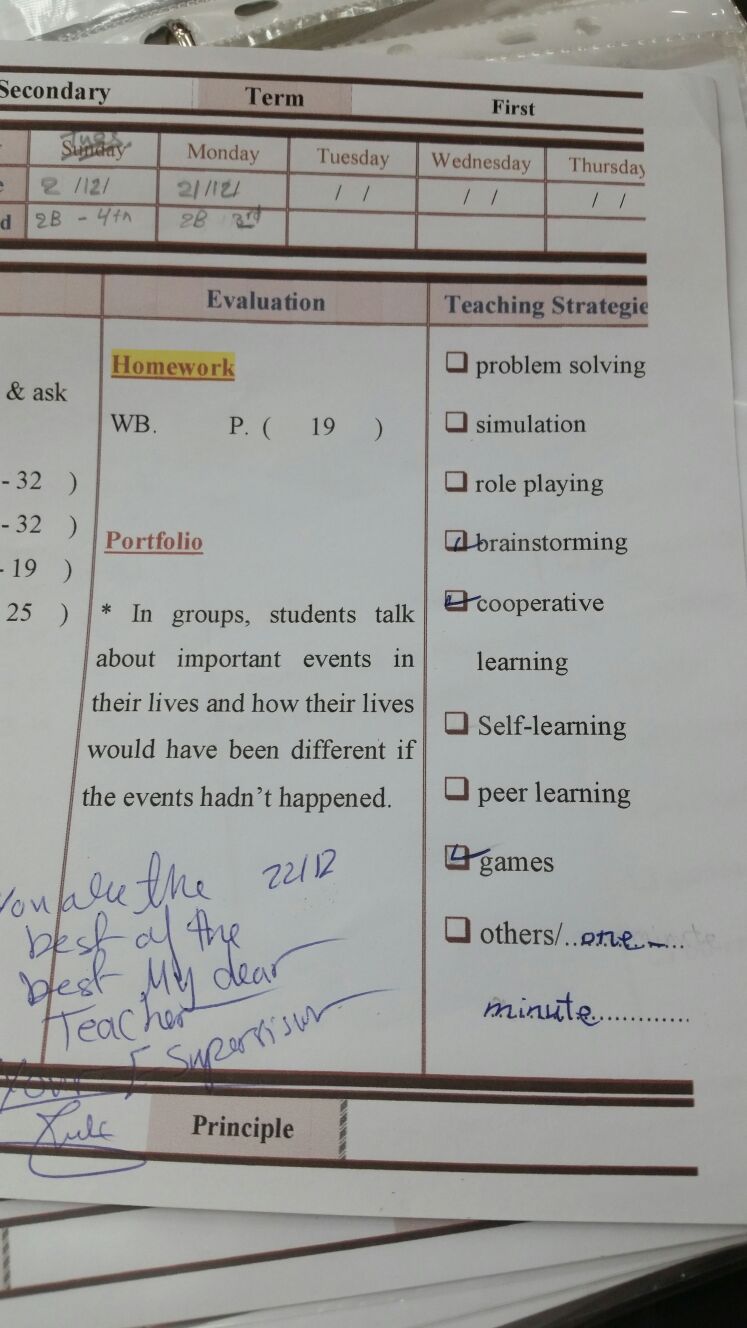 Secondary Term First
Tues
Sunday Monday Tuesday Wednesday Thursday
2 /12/ 21/12/ / / / / / /
d 2B - 4th 2B 3rd
Evaluation Teaching Strategie
Homework
& ask
WB. P. ( 19 )
- 32 )
- 32 )
- 19 )
25 )
Portfolio
* In groups, students talk
about important events in
their lives and how their lives
would have been different if
the events hadn't happened.
problem solving
simulation
role playing
brainstorming
cooperative
learning
Self-learning
peer learning
games
others/..one.....
minute.............
22/12
You are the
best of the
best My dear
Teacher
Your Supervisor
Principle